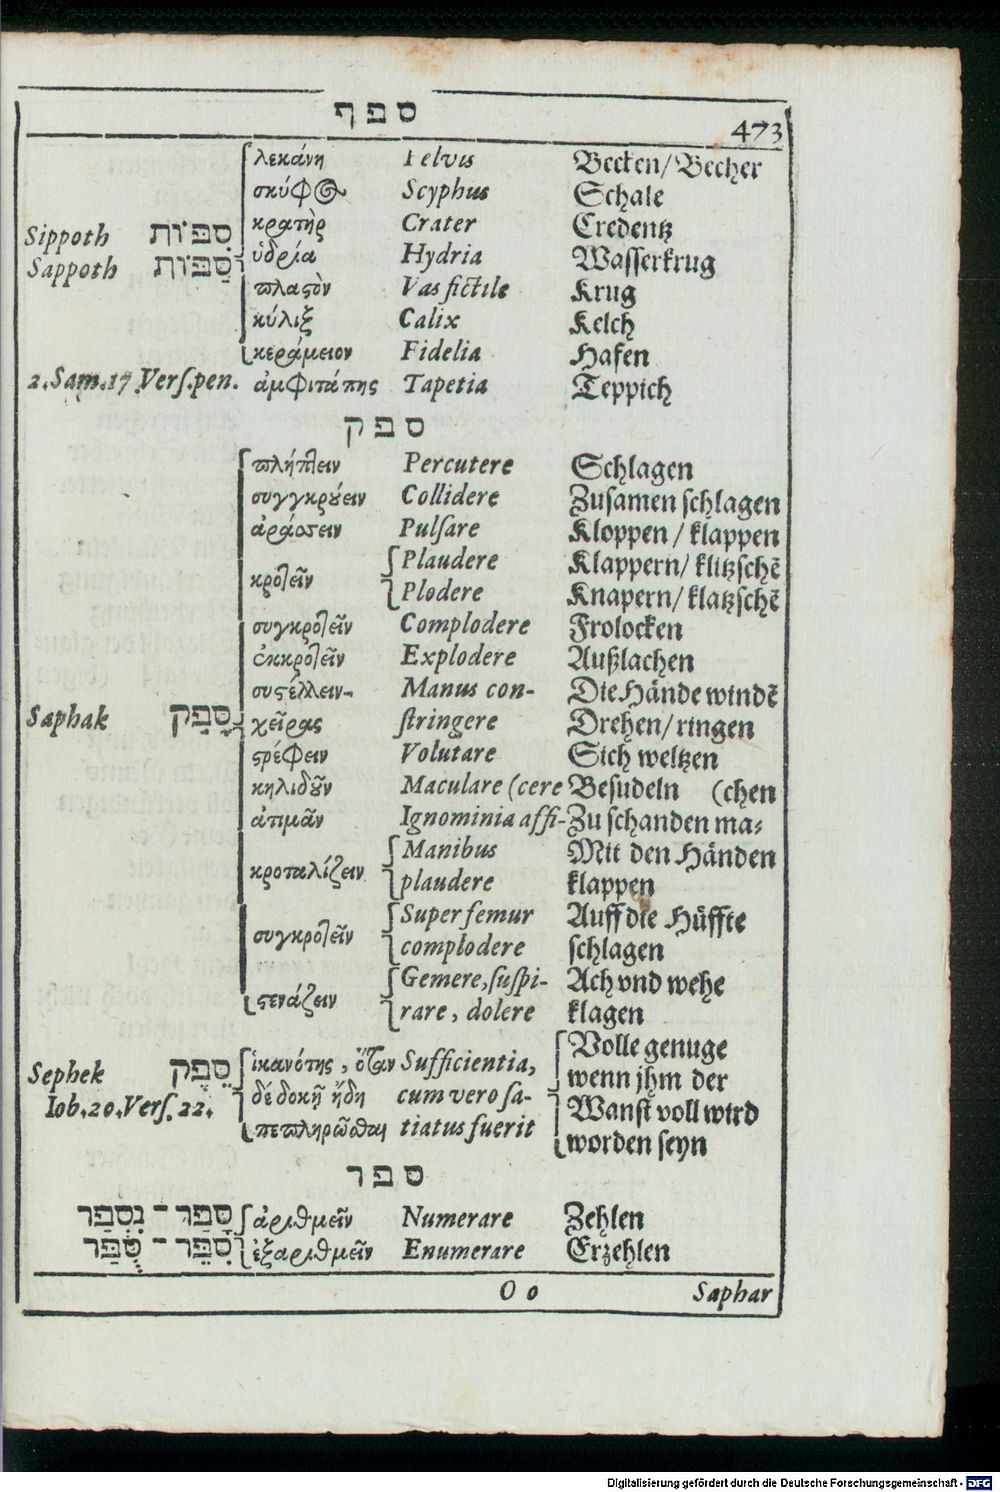 ספף
473
λεκάνη Pelvis Becken/Becher
σκύφος Scyphus Schale
κρατὴρ Crater Credentz
Sippoth סִפּוֹת ὑδρία Hydria Wasserkrug
Sappoth סַפּוֹת πλαστὸν Vas fictile Krug
κύλιξ Calix Kelch
κεράμειον Fidelia Hafen
2. Sam. 17 Vers. pen. ἀμφιτάπης Tapetia Teppich
ספק
πλήττειν Percutere Schlagen
συγγκρούειν Collidere Zusamen schlagen
ἀράσσειν Pulsare Kloppen / klappen
κροτεῖν Plaudere Klappern/ klitzschē
Plodere Knapern/ klatzschē
συγκροτεῖν Complodere Frolocken
ἐκκροτεῖν Explodere Außlachen
συστέλλειν- Manus con- Die Hände windē
Saphak סָפַק χεῖρας stringere Drehen/ ringen
στρέφειν Volutare Sich weltzen
κηλιδοῦν Maculare (cere Besudeln (chen
ἀτιμᾶν Ignominia affi- Zu schanden ma-
κροταλίζειν Manibus Mit den Händen
plaudere klappen
συγκροτεῖν Super femur Auff die Hüffte
complodere schlagen
στενάζειν Gemere, suspi- Ach vnd wehe
rare, dolere klagen
Sephek סֵפֶק ἱκανότης, ὅταν Sufficientia, Volle genuge
Iob. 20. Vers. 22. δέδοκῇ ἤδη cum vero sa- wenn jhm der
πεπληρῶσθαι tiatus fuerit Wanst voll wird
worden seyn
ספר
סָפַר - נִסְפַּר ἀριθμεῖν Numerare Zehlen
סִפֵּר - סֻפַּר ἐξαριθμεῖν Enumerare Erzehlen
O o Saphar
Digitalisierung gefördert durch die Deutsche Forschungsgemeinschaft - DFG